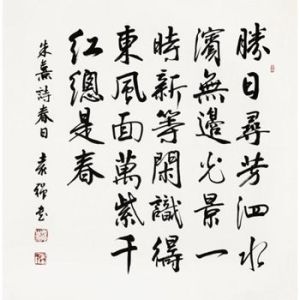 勝日尋芳泗水
濱無邊光景一
時新等閑識得
東風面萬紫千
紅總是春
朱熹詩春日